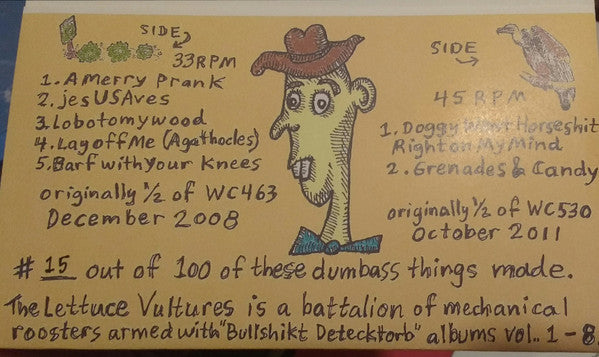 SIDE
33RPM
1. A Merry Prank
2. jesUSAves
3. Lobotomywood
4. Lay off Me (Agathocles)
5. Barf with Your Knees
originally 1/2 of WC463
December 2008
SIDE
45 RPM
1. Doggy Horseshit
Right on My Mind
2. Grenades & Candy
originally 1/2 of WC530
October 2011
# 15 out of 100 of these dumbass things made.
The Lettuce Vultures is a battalion of mechanical
roosters armed with "Bullshikt Detecktorb" albums vol.. 1-8.